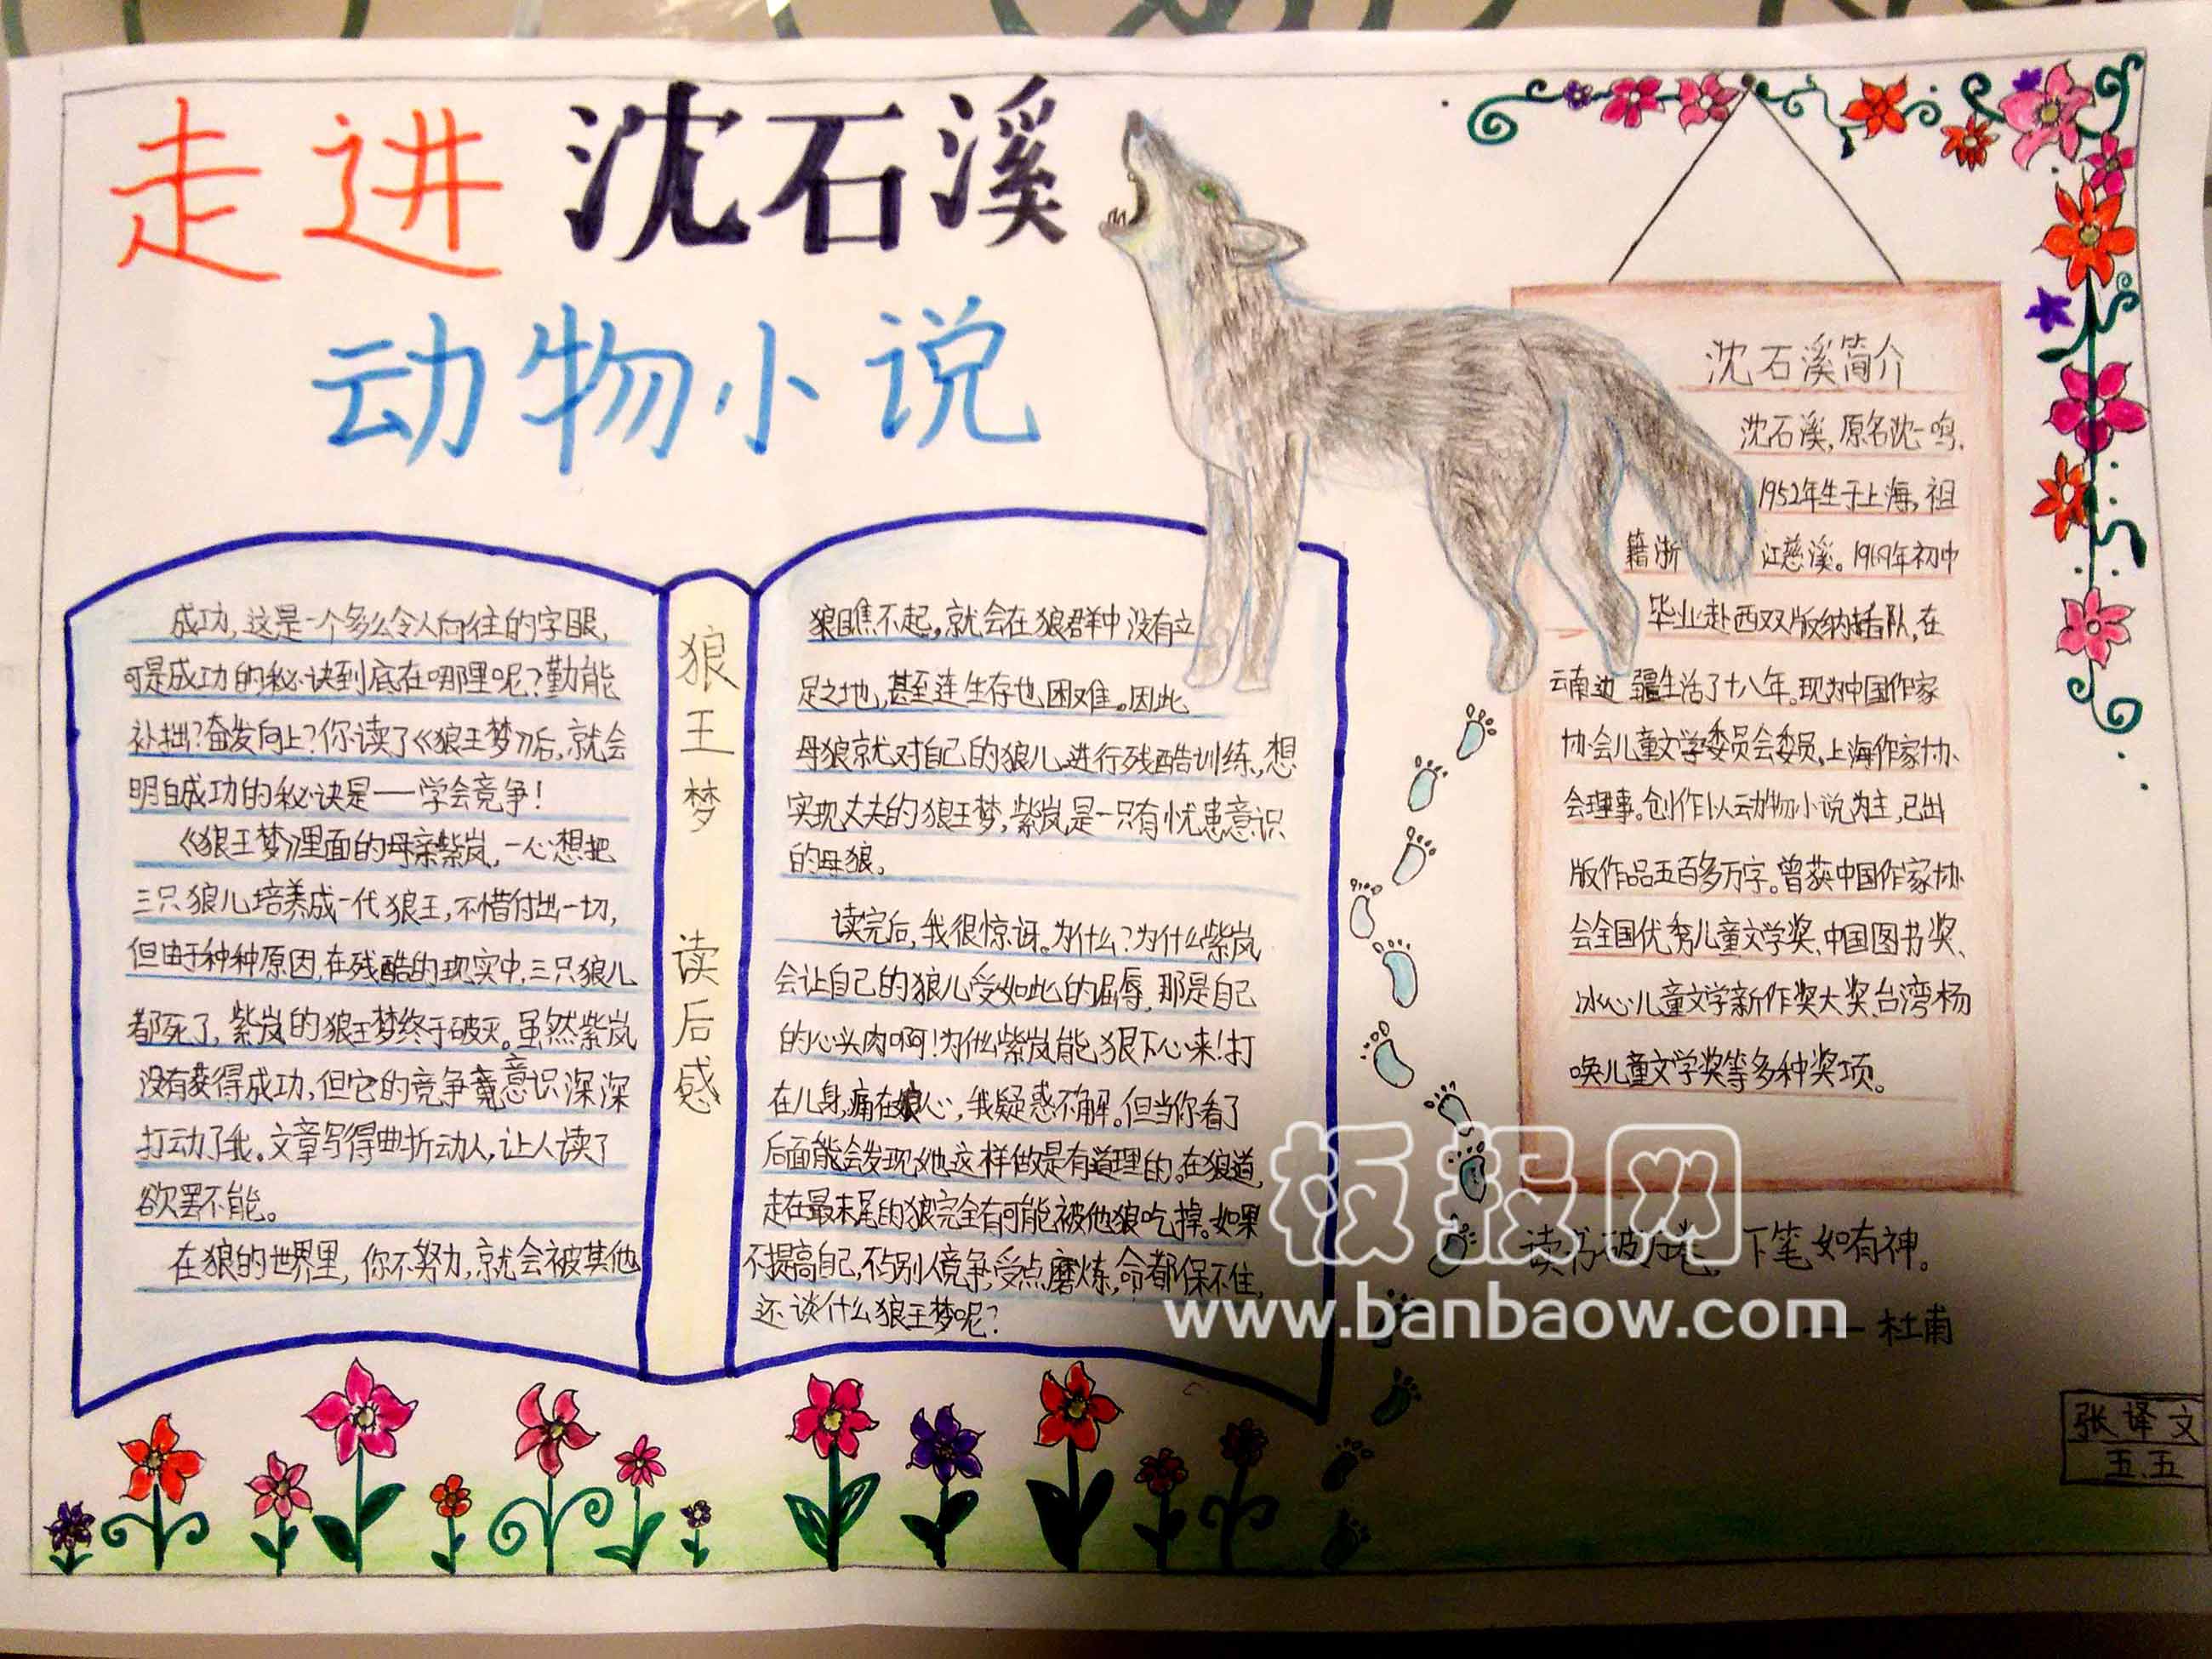 走进沈石溪
动物小说
成功,这是一个多么令人向往的字眼,
可是成功的秘诀到底在哪里呢?勤能
补拙?奋发向上?你读了《狼王梦》后,就会
明白成功的秘诀是——学会竞争!
《狼王梦》里面的母亲紫岚,一心想把
三只狼儿培养成一代狼王,不惜付出一切,
但由于种种原因,在残酷的现实中,三只狼儿
都死了,紫岚的狼王梦终于破灭。虽然紫岚
没有获得成功,但它的竞争意识深深
打动了我。文章写得曲折动人,让人读了
欲罢不能。
在狼的世界里,你不努力,就会被其他
狼王梦 读后感
狼瞧不起,就会在狼群中没有立
足之地,甚至连生存也困难。因此,
母狼就对自己的狼儿进行残酷训练,想
实现丈夫的狼王梦,紫岚是一只有忧患意识
的母狼。
读完后,我很惊讶。为什么?为什么紫岚
会让自己的狼儿受如此的屈辱,那是自己
的心头肉啊!为什么紫岚能狠下心来!打
在儿身,痛在娘心,我疑惑不解。但当你看了
后面能会发现,她这样做是有道理的。在狼道,
走在最末尾的狼完全有可能被他狼吃掉。如果
不提高自己,不与别人竞争,受点磨炼,命都保不住,
还谈什么狼王梦呢?
沈石溪简介
沈石溪,原名沈一鸣,
1952年生于上海,祖
籍浙江慈溪。1969年初中
毕业赴西双版纳插队,在
云南边疆生活了十八年。现为中国作家
协会儿童文学委员会委员,上海作家协
会理事。创作以动物小说为主,已出
版作品五百多万字。曾获中国作家协
会全国优秀儿童文学奖、中国图书奖、
冰心儿童文学新作奖大奖、台湾杨
唤儿童文学奖等多种奖项。
读书破万卷,下笔如有神。
——杜甫
板报网
www.banbaow.com
张译文
五、五